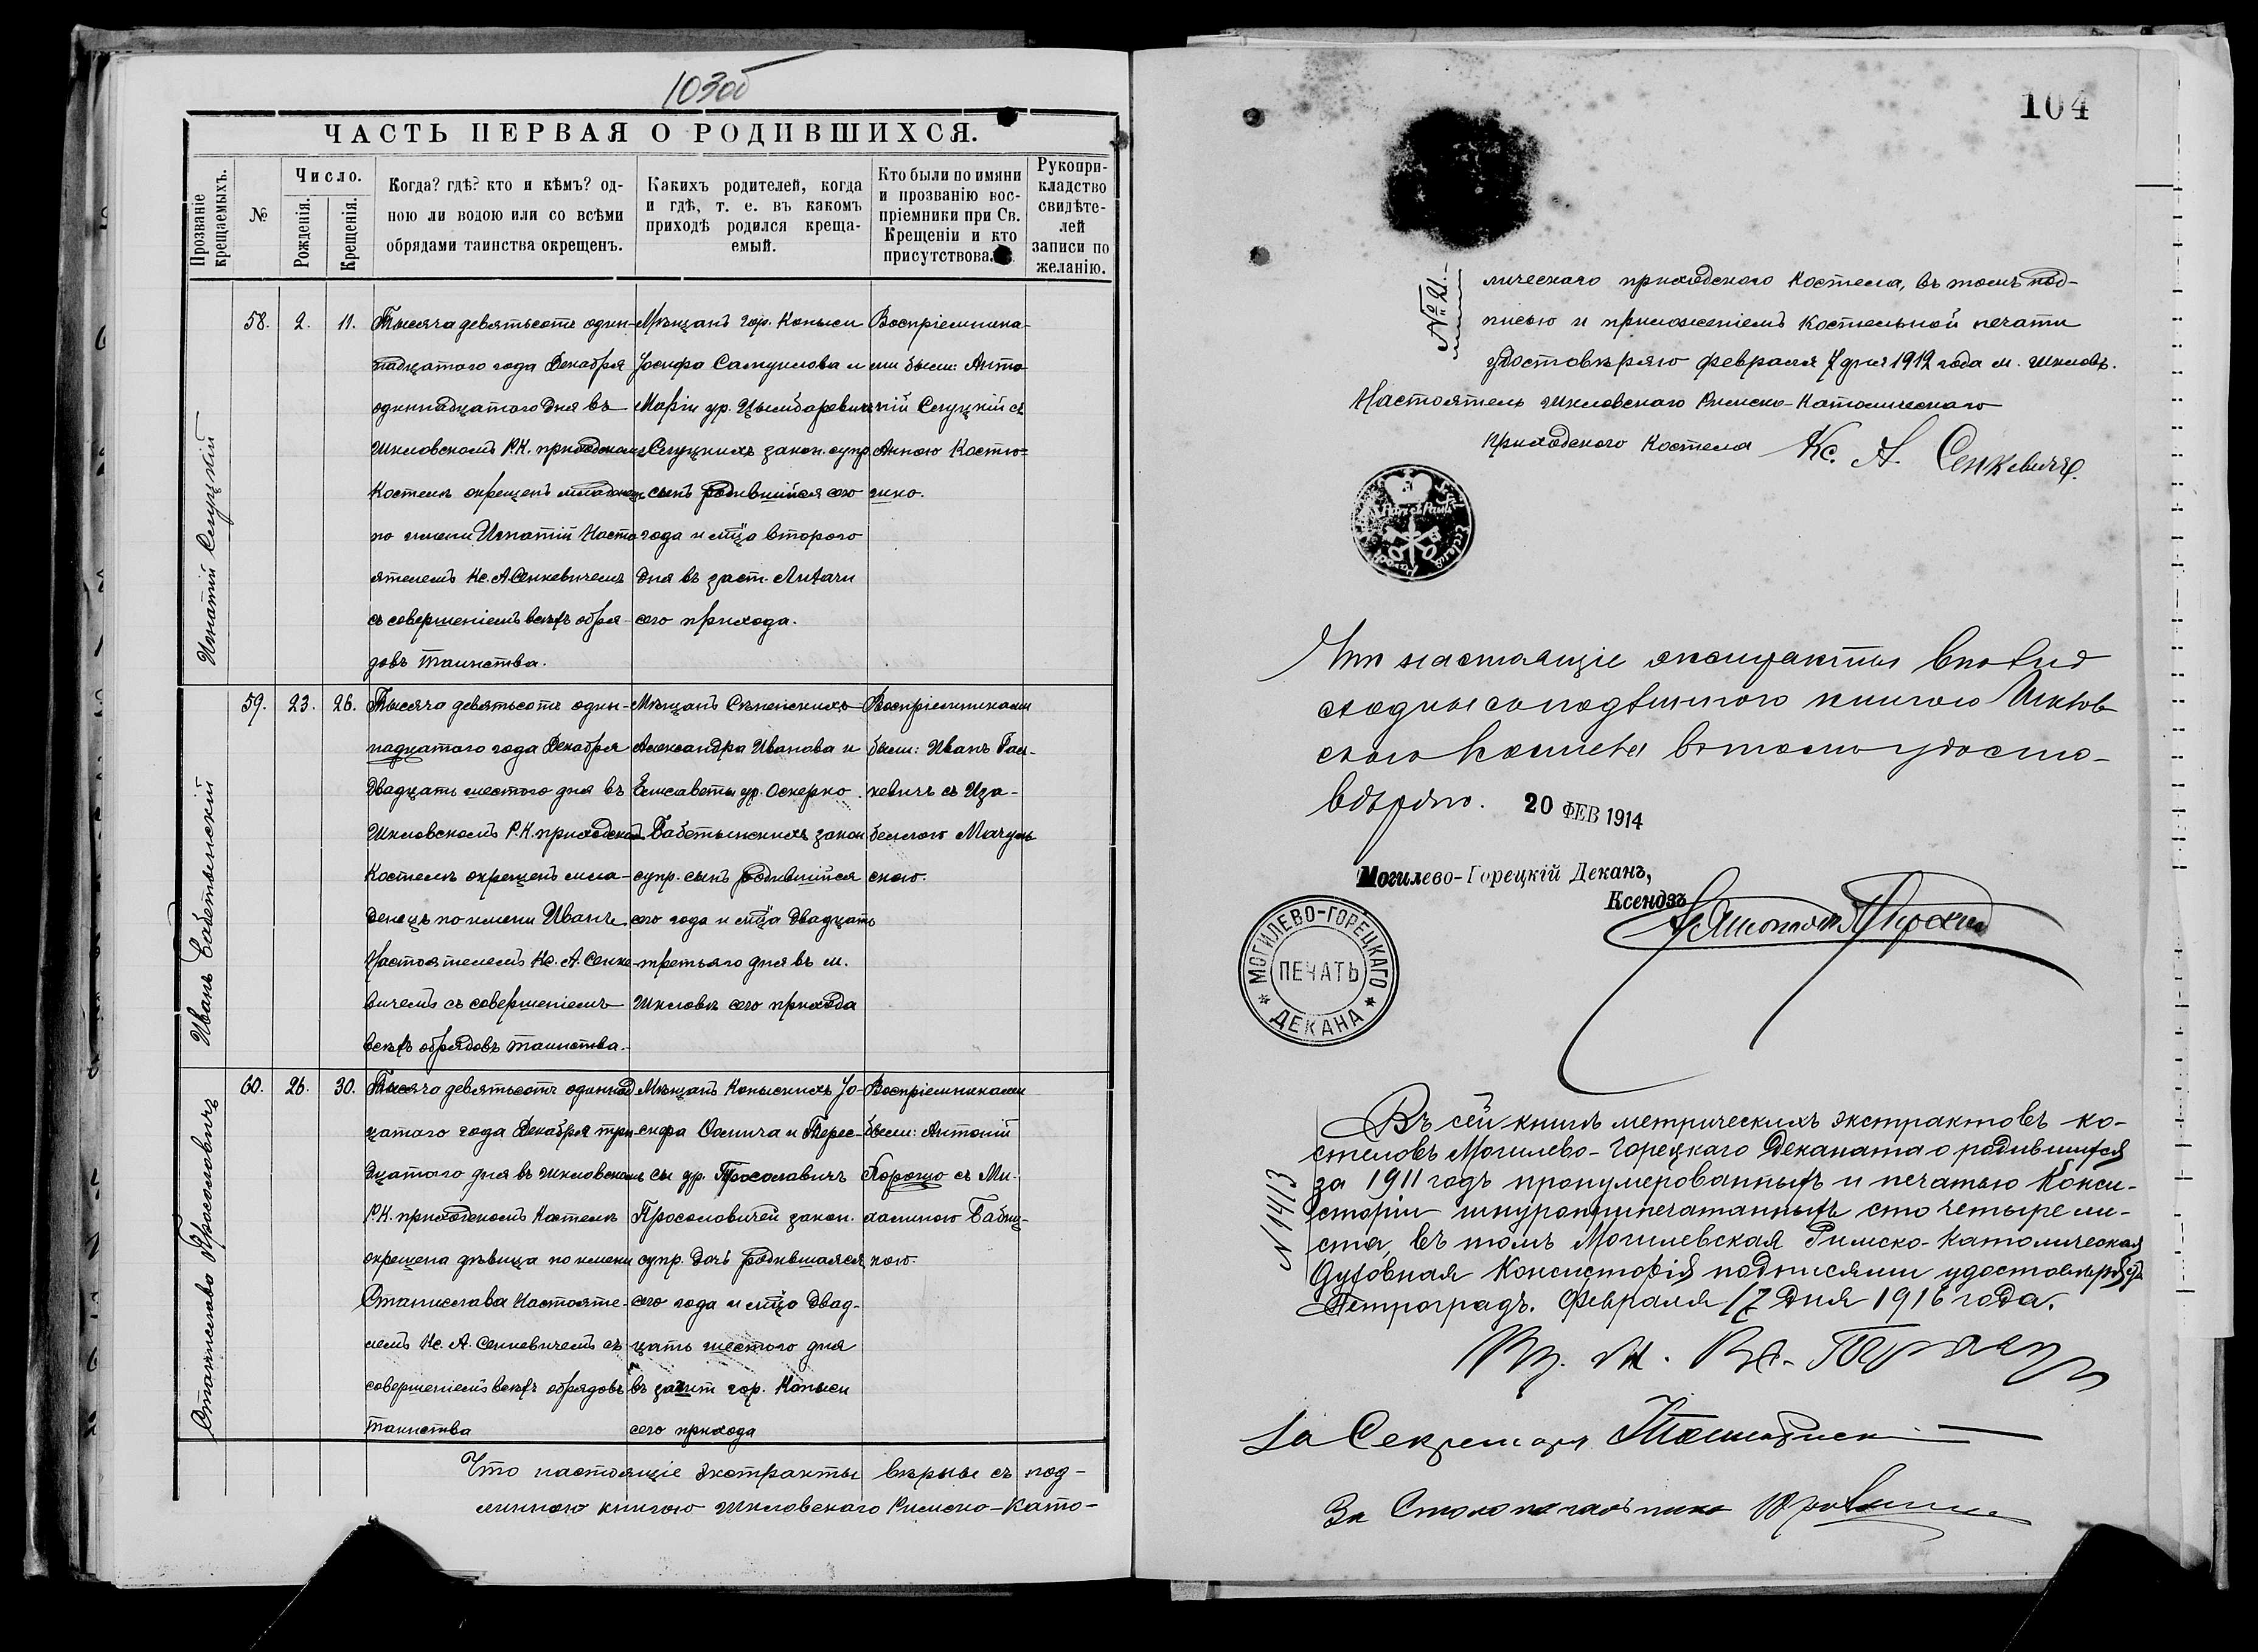 103об
ЧАСТЬ ПЕРВАЯ О РОДИВШИХСЯ.
Прозваніе крещаемыхъ.
№
Число.
Рожденія.
Крещенія.
Когда? гдѣ? кто и кѣмъ? од-
ною ли водою или со всѣми
обрядами таинства окрещенъ.
Какихъ родителей, когда
и гдѣ, т. е. въ какомъ
приходѣ родился креща-
емый.
Кто были по имяни
и прозванію вос-
пріемники при Св.
Крещеніи и кто
присутствовалъ.
Рукопри-
кладство
свидѣте-
лей
записи по
желанію.
Игнатій Слуцкій
58.
2.
11.
Тысяча девятьсотъ один-
надцатого года Декабря
одиннадцатого дня въ
Шкловскомъ Р.К. приходскомъ
Костелѣ окрещенъ младенецъ
по имени Игнатій Насто-
ятелемъ Кс. А Сенкевичемъ
съ совершеніемъ всѣхъ обря-
довъ таинства.
Мѣщанъ гор. Копыси
Іосифа Самуилова и
Маріи ур. Цымбаревичъ
Слуцкихъ закон. супр.
сынъ родившійся сего
года и м̃ца второго
дня въ заст.
сего прихода.
Воспріемника-
ми были: Анто-
ній Слуцкій съ
Анною Костю-
шко.
Иванъ Бабетынскій
59.
23.
26.
Тысяча девятьсотъ один-
надцатого года Декабря
двадцать шестого дня въ
Шкловскомъ Р.К. приходскомъ
Костелѣ окрещенъ мла-
денецъ по имени Иванъ
Настоятелемъ Кс. А. Сенке-
вичемъ съ совершеніемъ
всѣхъ обрядовъ таинства.
Мѣщанъ Сѣнскихъ
Александра Иванова и
Елисаветы ур. Оскерко
Бабетынскихъ закон
супр. сынъ родившійся
сего года и м̃ца двадцать
третьяго дня въ м.
Шкловѣ сего прихода
Воспріемниками
были: Иванъ
съ Иза-
беллою
Станислава Просоловичъ
60.
26.
30.
Тысяча девятьсотъ одиннад
цатого года Декабря три-
дцатого дня въ Шкловскомъ
Р.К. приходскомъ Костелѣ
окрещена дѣвица по имени
Станислава Настояте-
лемъ Кс. А. Сенкевичемъ съ
совершеніемъ всѣхъ обрядовъ
таинства
Мѣщанъ Копыскихъ Іо-
сифа Осипа и Терес-
сы ур.
Просоловичей закон.
супр. дочь родившаяся
сего года и м̃ца двад-
цать шестого дня
въ гор. Копыси
сего прихода
Воспріемниками
были: Антоній
съ Ми-
халиною
Что настоящіе экстракты вѣрны съ под-
линною книгою Шкловскаго Римско-Като-
104
№ 21.
лическаго приходского Костела, въ томъ под-
писью и приложеніемъ Костельной печати
удостовѣряю февраля 7 дня 1912 года м. Шкловъ.
Настоятель Шкловскаго Римско-Католическаго
приходского Костела Кс. А. Сенкевичъ.
Что настоящіе экстракты вполнѣ
сходны съ подлинною книгою Шклов
скаго Костела въ томъ удосто-
вѣряю. 20 ФЕВ 1914
Могилево-Горецкій Деканъ,
Ксендзъ
МОГИЛЕВО-ГОРЕЦКАГО ДЕКАНА
ПЕЧАТЬ
N 1413
Въ сей книгѣ метрическихъ экстрактовъ ко-
стеловъ Могилево-Горецкаго Деканата о родившихся
за 1911 годъ пронумерованныхъ и печатью Конси-
сторіи шнуроприпечатанныхъ сто четыре ли-
ста, въ томъ Могилевская Римско-Католическая
Духовная Консисторія подписями удостовѣряетъ
Петроградъ. Февраля 17 дня 1916 года.
За Секретаря
За Столоначальника